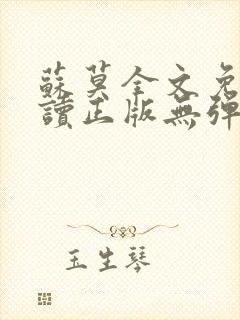 蘇莫全文免
讀正版無彈
玉生琴